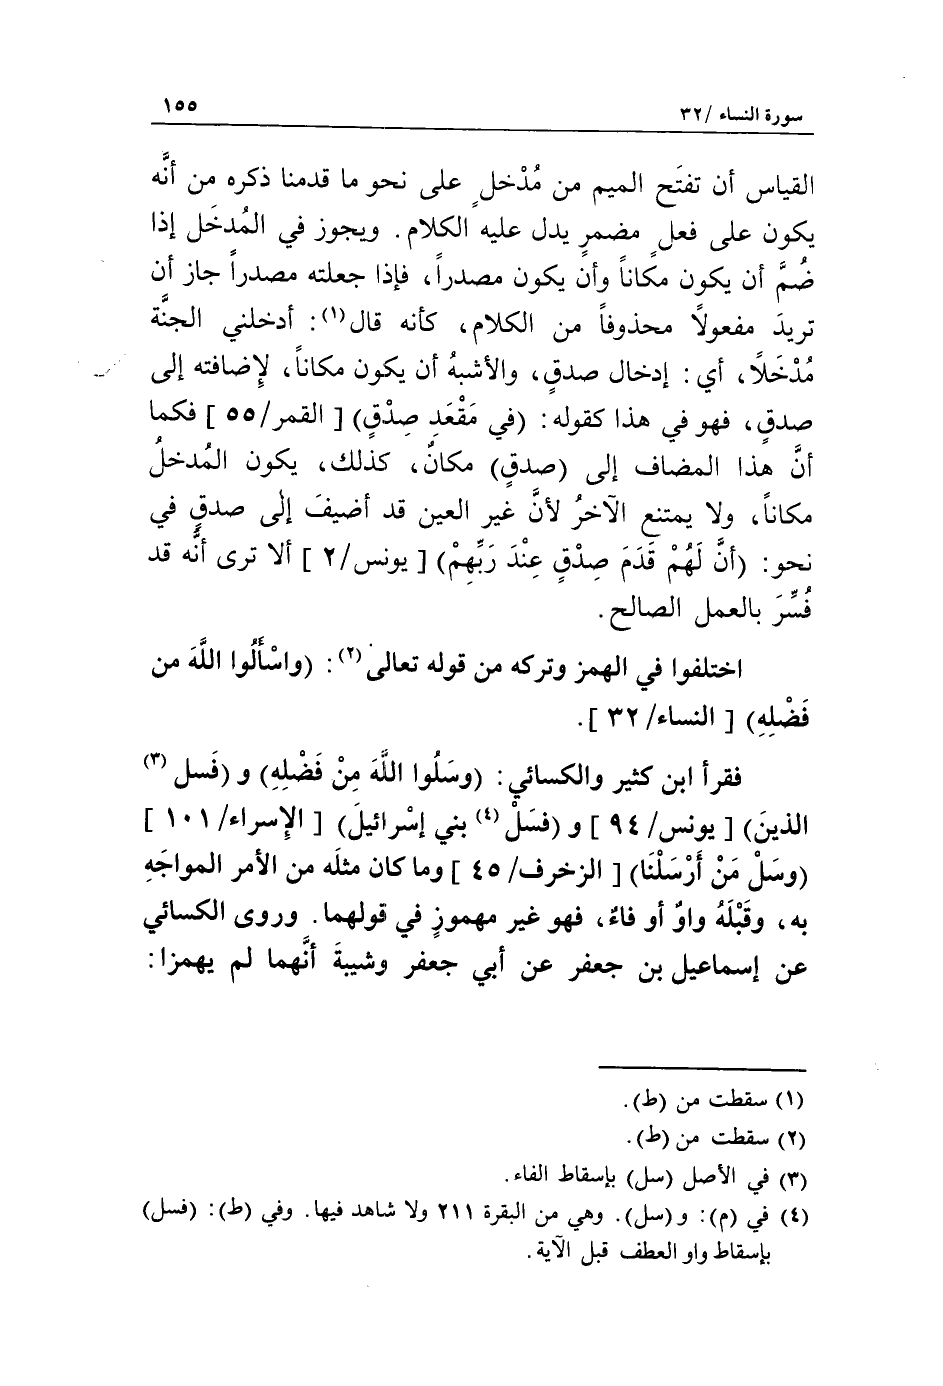 سورة النساء /٣٢
١٥٥
القياس أن تفتَح الميم من مُدْخلٍ على نحو ما قدمنا ذكره من أنَّه
يكون على فعلٍ مضمرٍ يدل عليه الكلام. ويجوز في المُدخَل إذا
ضُمَّ أن يكون مكاناً وأن يكون مصدراً، فإذا جعلته مصدراً جاز أن
تريدَ مفعولاً محذوفاً من الكلام، كأنه قال(١): أدخلني الجنَّة
مُدْخَلاً، أي: إدخال صدقٍ، والأشبهُ أن يكون مكاناً، لإِضافته إلى
صدقٍ، فهو في هذا كقوله: (في مَقْعَدِ صِدْقٍ) [ القمر/٥٥ ] فكما
أنَّ هذا المضاف إلى (صدقٍ) مكانٌ، كذلك، يكون المُدخلُ
مكاناً، ولا يمتنع الآخرُ لأنَّ غير العين قد أضيفَ إلى صدقٍ في
نحو: (أنَّ لَهُمْ قَدَمَ صِدْقٍ عِنْدَ رَبِّهِمْ) [ يونس/٢ ] ألا ترى أنَّه قد
فُسِّرَ بالعمل الصالح.
اختلفوا في الهمز وتركه من قوله تعالى(٢): (واسْأَلُوا اللَّهَ من
فَضْلِهِ) [ النساء/ ٣٢ ].
فقرأ ابن كثير والكسائي: (وسَلُوا اللَّهَ مِنْ فَضْلِهِ) و (فَسل (٣)
الذينَ) [ يونس/ ٩٤ ] و (فسَلْ (٤) بني إسْرائيلَ) [ الإسراء/ ١٠١ ]
(وسَلْ مَنْ أَرْسَلْنَا) [ الزخرف/ ٤٥ ] وما كان مثلَه من الأمر المواجَهِ
به، وقَبْلَهُ واوٌ أو فاءٌ، فهو غير مهموزٍ في قولهما. وروى الكسائي
عن إسماعيل بن جعفر عن أبي جعفر وشيبةَ أنَّهما لم يهمزا:
(١) سقطت من (ط).
(٢) سقطت من (ط).
(٣) في الأصل (سل) بإسقاط الفاء.
(٤) في (م): و(سل). وهي من البقرة ٢١١ ولا شاهد فيها. وفي (ط): (فسل)
بإسقاط واو العطف قبل الآية.